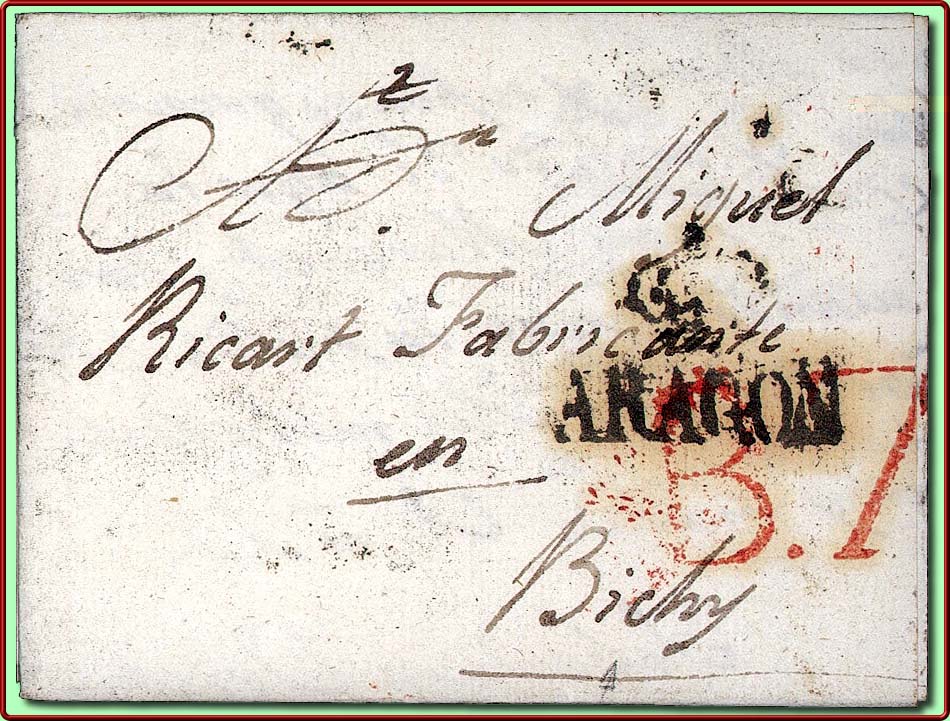 2
A Dn. Miguel
Ricart Fabricante
ARAGON
B.7
en
Bichy